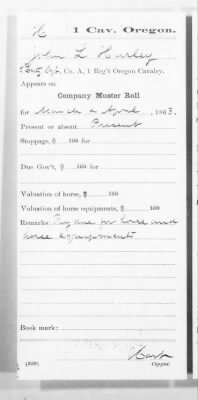 H 1 Cav. Oregon.
John L Hurley
Co. A, 1 Reg't Oregon Cavalry.
Appears on
Company Muster Roll
for March & April, 1863.
Present or absent Present
Stoppage, $ 100 for
Due Gov't, $ 100 for
Valuation of horse, $ 100
Valuation of horse equipments, $ 100
Remarks: Pay due for horse and
horse equipments
Book mark:
(358) Copyist.